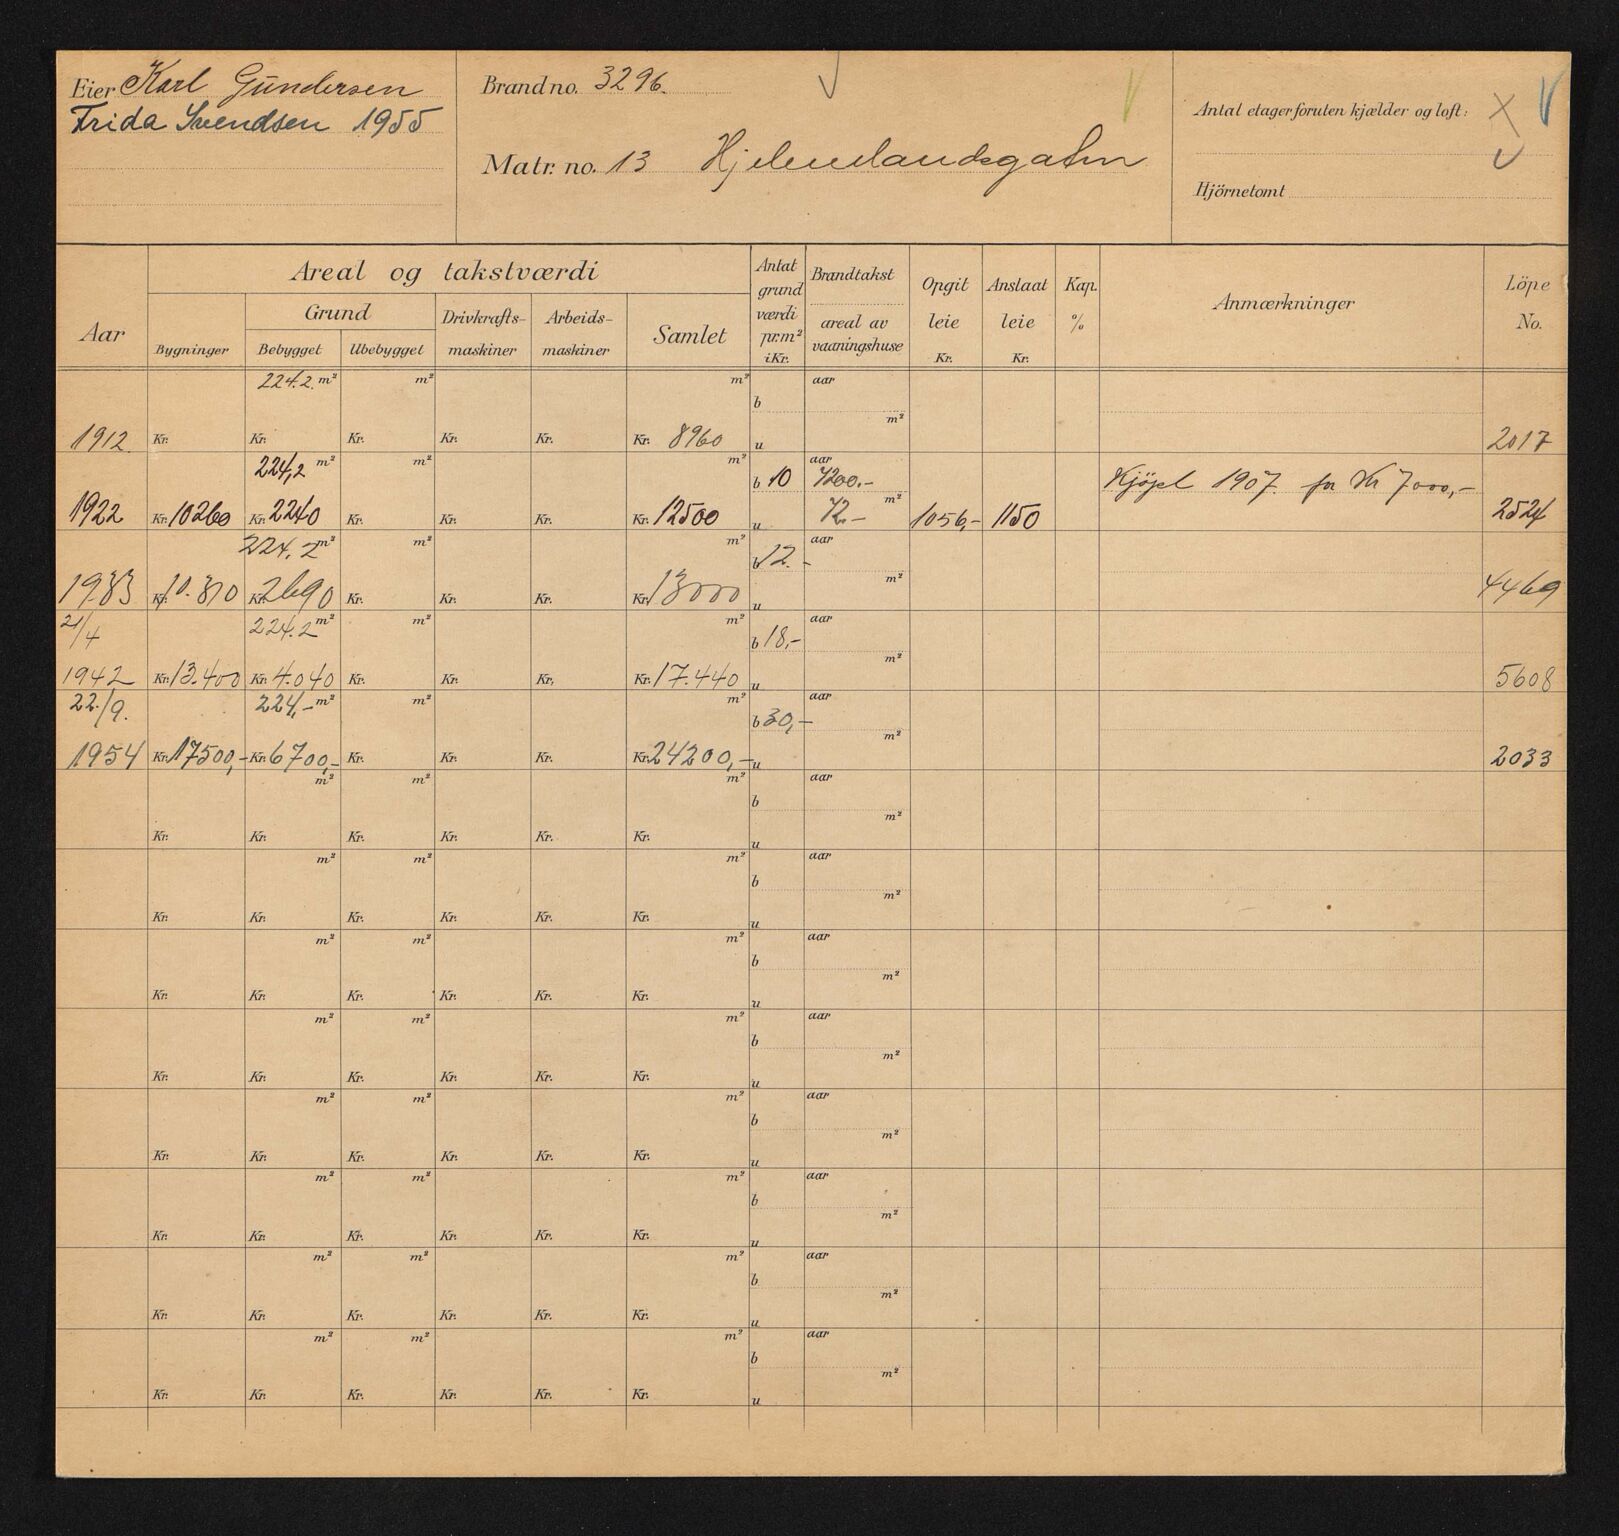 Eier Karl Gundersen
Frida Svendsen 1955
Brand no. 3296.
Matr. no. 13 Hjelmelandsgaten
Antal etager foruten kjælder og loft:
Hjörnetomt
Aar
Areal og takstværdi
Bygninger
Grund
Bebygget
Ubebygget
Drivkrafts-maskiner
Arbeids-maskiner
Samlet
Antat grund værdi pr.m² i Kr.
Brandtakst
areal av vaaningshuse
Opgit leie Kr.
Anslaat leie Kr.
Kap. %
Anmærkninger
Löpe No.
224.2. m² m² m² b aar m²
1912. Kr. Kr. Kr. Kr. Kr. Kr. 8960 u 2017
224,2 m² m² m² b 10 aar 7200.- m² Kjöpt 1907. for Kr 7000,-
1922 Kr. 10260 Kr. 2240 Kr. Kr. Kr. Kr. 12500 u 72.- 1056,- 1150 2524
224.2 m² m² m² b 12.- aar m²
1933 Kr. 10.310 Kr. 2690 Kr. Kr. Kr. Kr. 13000 u 4469
21/4 224.2 m² m² m² b 18,- aar m²
1942 Kr. 13.400 Kr. 4.040 Kr. Kr. Kr. Kr. 17.440 u 5608
22./9. 224,- m² m² m² b 30,- aar m²
1954 Kr. 17500,- Kr. 6700,- Kr. Kr. Kr. Kr. 24200,- u 2033
m² m² m² b aar m²
Kr. Kr. Kr. Kr. Kr. Kr. u
m² m² m² b aar m²
Kr. Kr. Kr. Kr. Kr. Kr. u
m² m² m² b aar m²
Kr. Kr. Kr. Kr. Kr. Kr. u
m² m² m² b aar m²
Kr. Kr. Kr. Kr. Kr. Kr. u
m² m² m² b aar m²
Kr. Kr. Kr. Kr. Kr. Kr. u
m² m² m² b aar m²
Kr. Kr. Kr. Kr. Kr. Kr. u
m² m² m² b aar m²
Kr. Kr. Kr. Kr. Kr. Kr. u
m² m² m² b aar m²
Kr. Kr. Kr. Kr. Kr. Kr. u